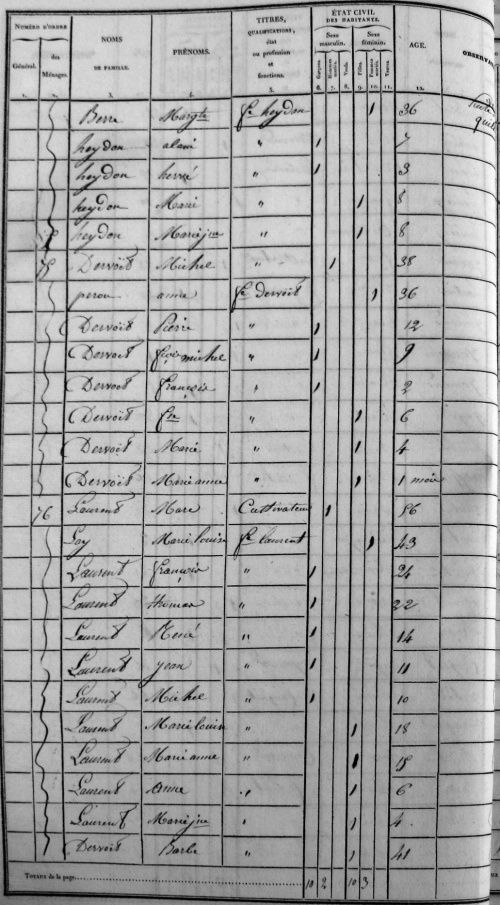 NUMÉRO D'ORDRE
Général. des Ménages.
NOMS DE FAMILLE.
PRÉNOMS.
TITRES, QUALIFICATIONS, état ou profession et fonctions.
ÉTAT CIVIL DES HABITANTS.
Sexe masculin. Sexe féminin.
Garçons. Hommes mariés. Veufs. Filles. Femmes mariées. Veuves.
AGE.
OBSERVA
1. 2. 3. 4. 5. 6. 7. 8. 9. 10. 11. 12.
Berre Margte fe heydon 1 36
heydon alain " 1 7
heydon hervé " 1 3
heydon Marie " 1 8
heydon Marie jne " 1 8
75 Dervoit Michel " 1 38
perou anne fe dervoit 1 36
Dervoit Pierre " 1 12
Dervoit fçois michel " 1 9
Dervoit françois " 1 2
Dervoit fse " 1 6
Dervoit Marie " 1 4
Dervoit Marie anne " 1 1 mois
76 Laurent Marc Cultivateur 1 56
Loy Marie louise fe laurent 1 43
Laurent françois " 1 24
Laurent thomas " 1 22
Laurent René " 1 14
Laurent jean " 1 11
Laurent Michel " 1 10
Laurent Marie louise " 1 18
Laurent Marie anne " 1 15
Laurent Anne " 1 6
Laurent Marie jne " 1 4
Dervoit Barbe " 1 41
TOTAUX de la page 10 2 10 3